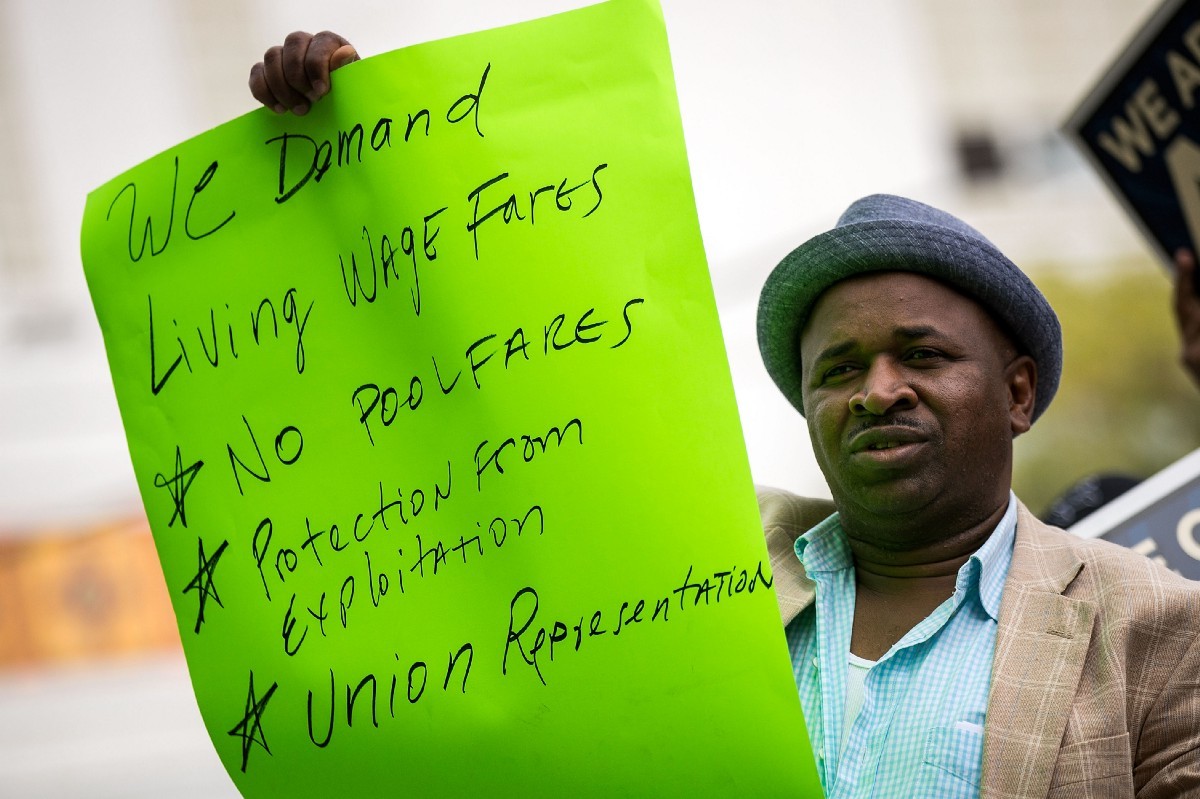 We Demand
Living WAgE Fares
No POOLFARES
Protection From
Exploitation
Union RepresentATiON
WE